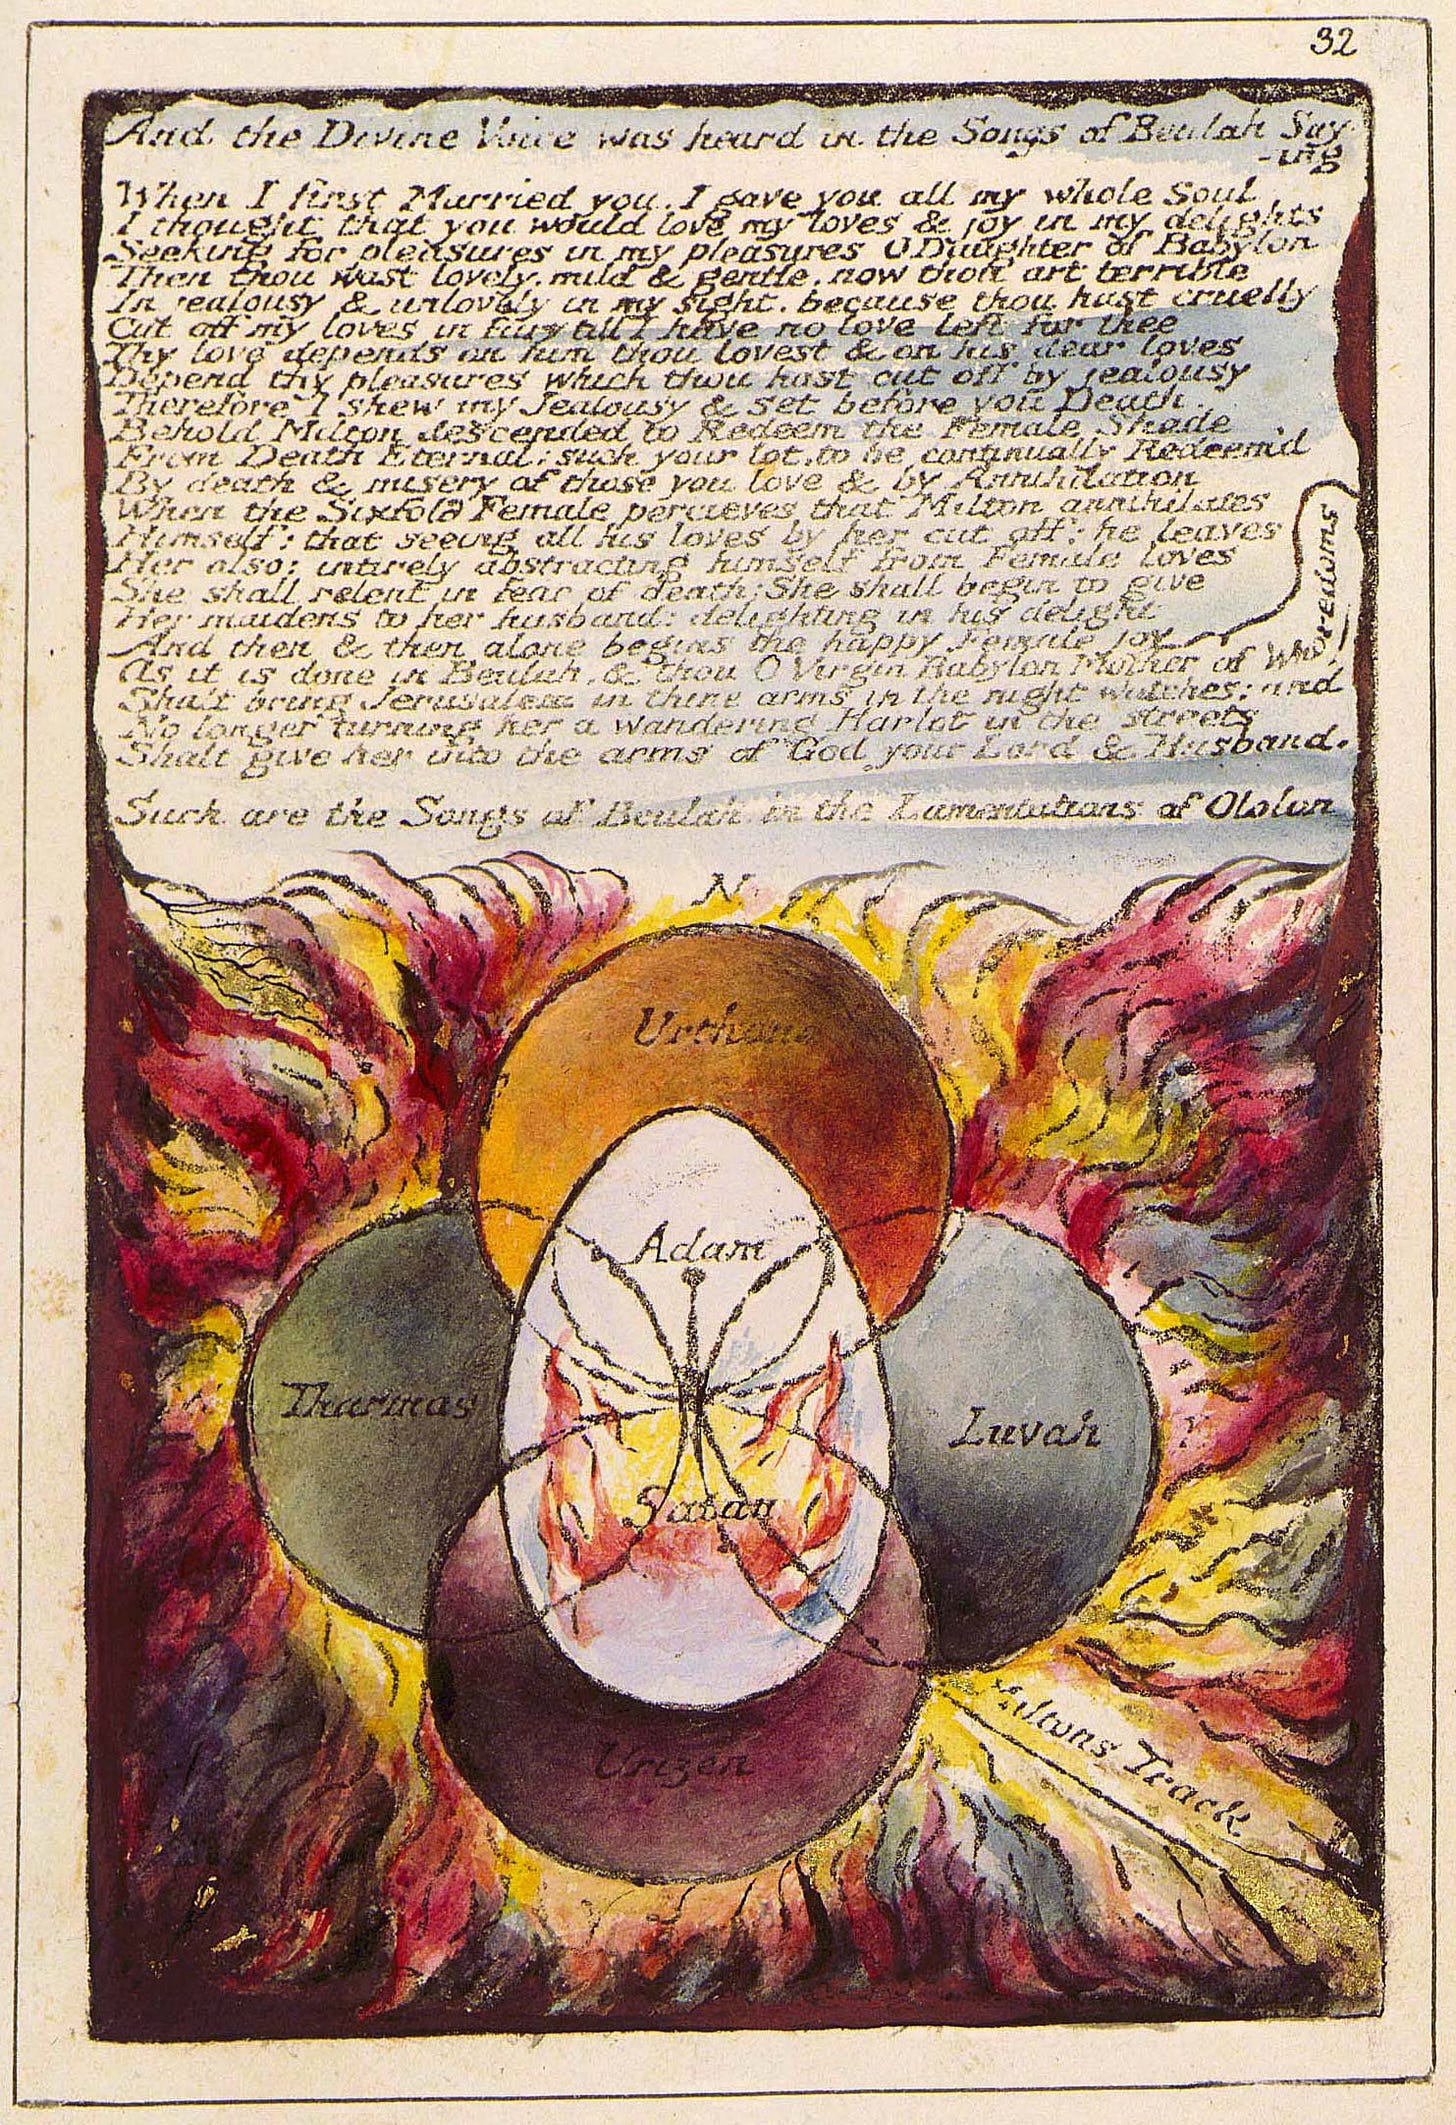 32
And the Divine Voice was heard in the Songs of Beulah Say
-ing
When I first Married you, I gave you all my whole Soul
I thought that you would love my loves & joy in my delights
Seeking for pleasures in my pleasures O Daughter of Babylon
Then thou wast lovely, mild & gentle, now thou art terrible
In jealousy & unlovely in my sight, because thou hast cruelly
Cut off my loves in fury till I have no love left for thee
Thy love depends on him thou lovest & on his dear loves
Depend thy pleasures which thou hast cut off by jealousy
Therefore I shew my Jealousy & set before you Death.
Behold Milton descended to Redeem the Female Shade
From Death Eternal; such your lot, to be continually Redeem'd
By death & misery of those you love & by Annihilation
When the Sixfold Female percieves that Milton annihilates
Himself: that seeing all his loves by her cut off: he leaves
Her also: intirely abstracting himself from Female loves
She shall relent in fear of death; She shall begin to give
Her maidens to her husband: delighting in his delight
And then & then alone begins the happy Female joy
As it is done in Beulah, & thou O Virgin Babylon Mother of Whoredoms
Shalt bring Jerusalem in thine arms in the night watches; and
No longer turning her a wandering Harlot in the streets
Shalt give her into the arms of God your Lord & Husband.
Such are the Songs of Beulah in the Lamentations of Ololon
N
Urthona
Adam
Tharmas
Luvah
Satan
Urizen
Miltons Track